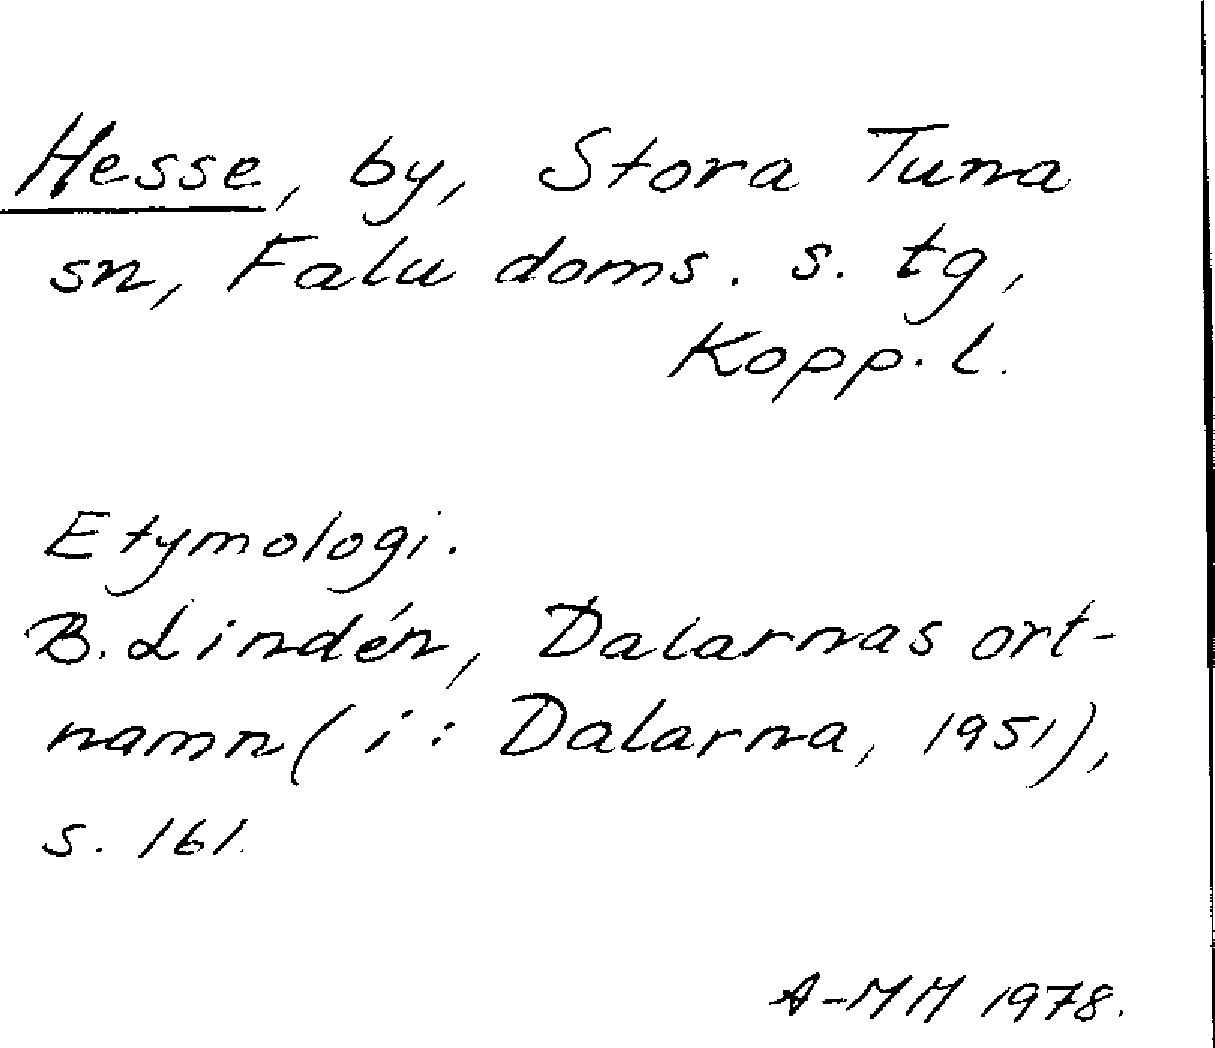 Hesse, by, Stora Tuna
sn, Falu doms. s. tg,
Kopp. l.
Etymologi.
B. Lindén, Dalarnas ort-
namn (i: Dalarna, 1951),
s. 161.
A-MH 1978.